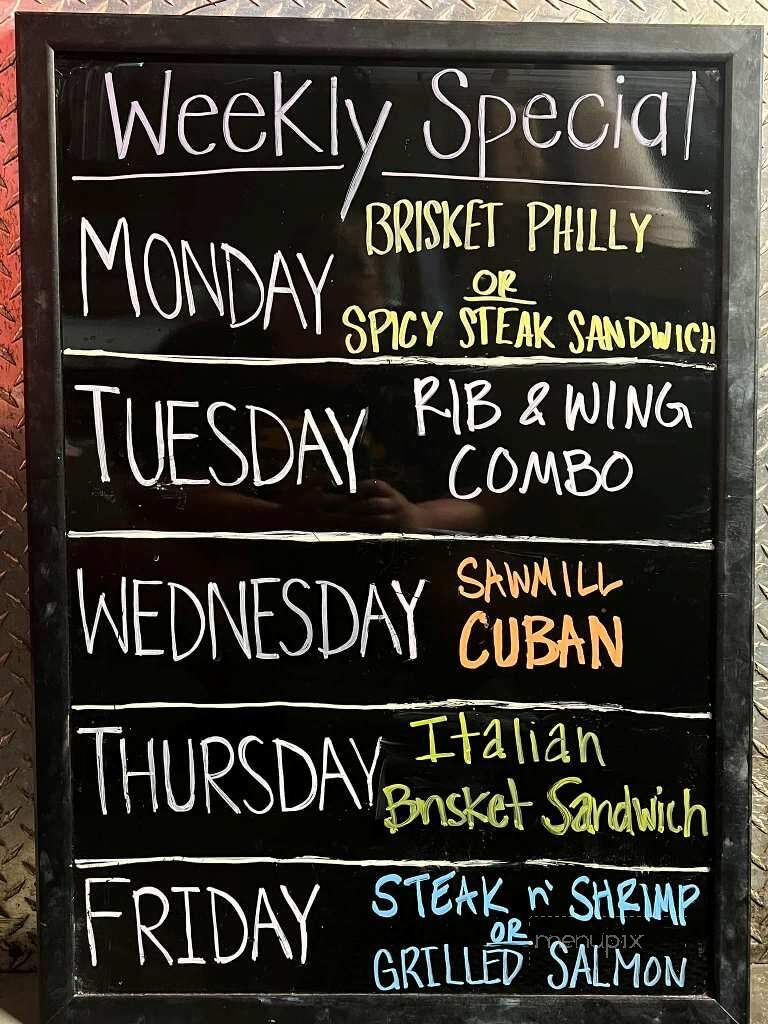 Weekly Special
MONDAY
BRISKET PHILLY
OR
SPICY STEAK SANDWICH
TUESDAY
RIB & WING
COMBO
WEDNESDAY
SAWMILL
CUBAN
THURSDAY
Italian
Brisket Sandwich
FRIDAY
STEAK n' SHRIMP
OR
menupix
GRILLED SALMON